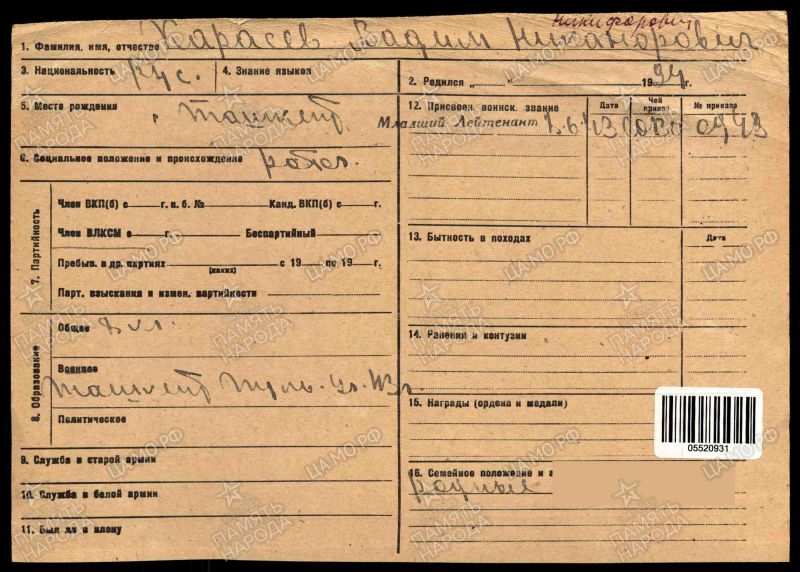 Никифорович
1. Фамилия, имя, отчество Карасев Вадим Никанорович
3. Национальность рус. 4. Знание языков
2. Родился „ “ 1924 г.
5. Место рождения г. Ташкент
12. Присвоен. воинск. звание Дата Чей приказ № приказа
Младший Лейтенант 7.6.43 0743
6. Социальное положение и происхождение рабоч.
7. Партийность
Член ВКП(б) с г. п. б. № Канд. ВКП(б) с г.
Член ВЛКСМ с г. Беспартийный
Пребыв. в др. партиях с 19 по 19 г.
(каких)
Парт. взыскания и измен. партийности
13. Бытность в походах Дата
8. Образование
Общее 8 кл.
Военное
Ташкент пуль. уч. 43 г.
Политическое
14. Ранения и контузии
15. Награды (ордена и медали)
05520931
9. Служба в старой армии
10. Служба в белой армии
11. Был ли в плену
16. Семейное положение и а
родные
ПАМЯТЬ НАРОДА
ЦАМО.РФ